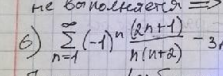 не выполняется ⇒
б) ∑_{n=1}^{∞} (-1)^n \frac{(2n+1)}{n(n+2)} - 3